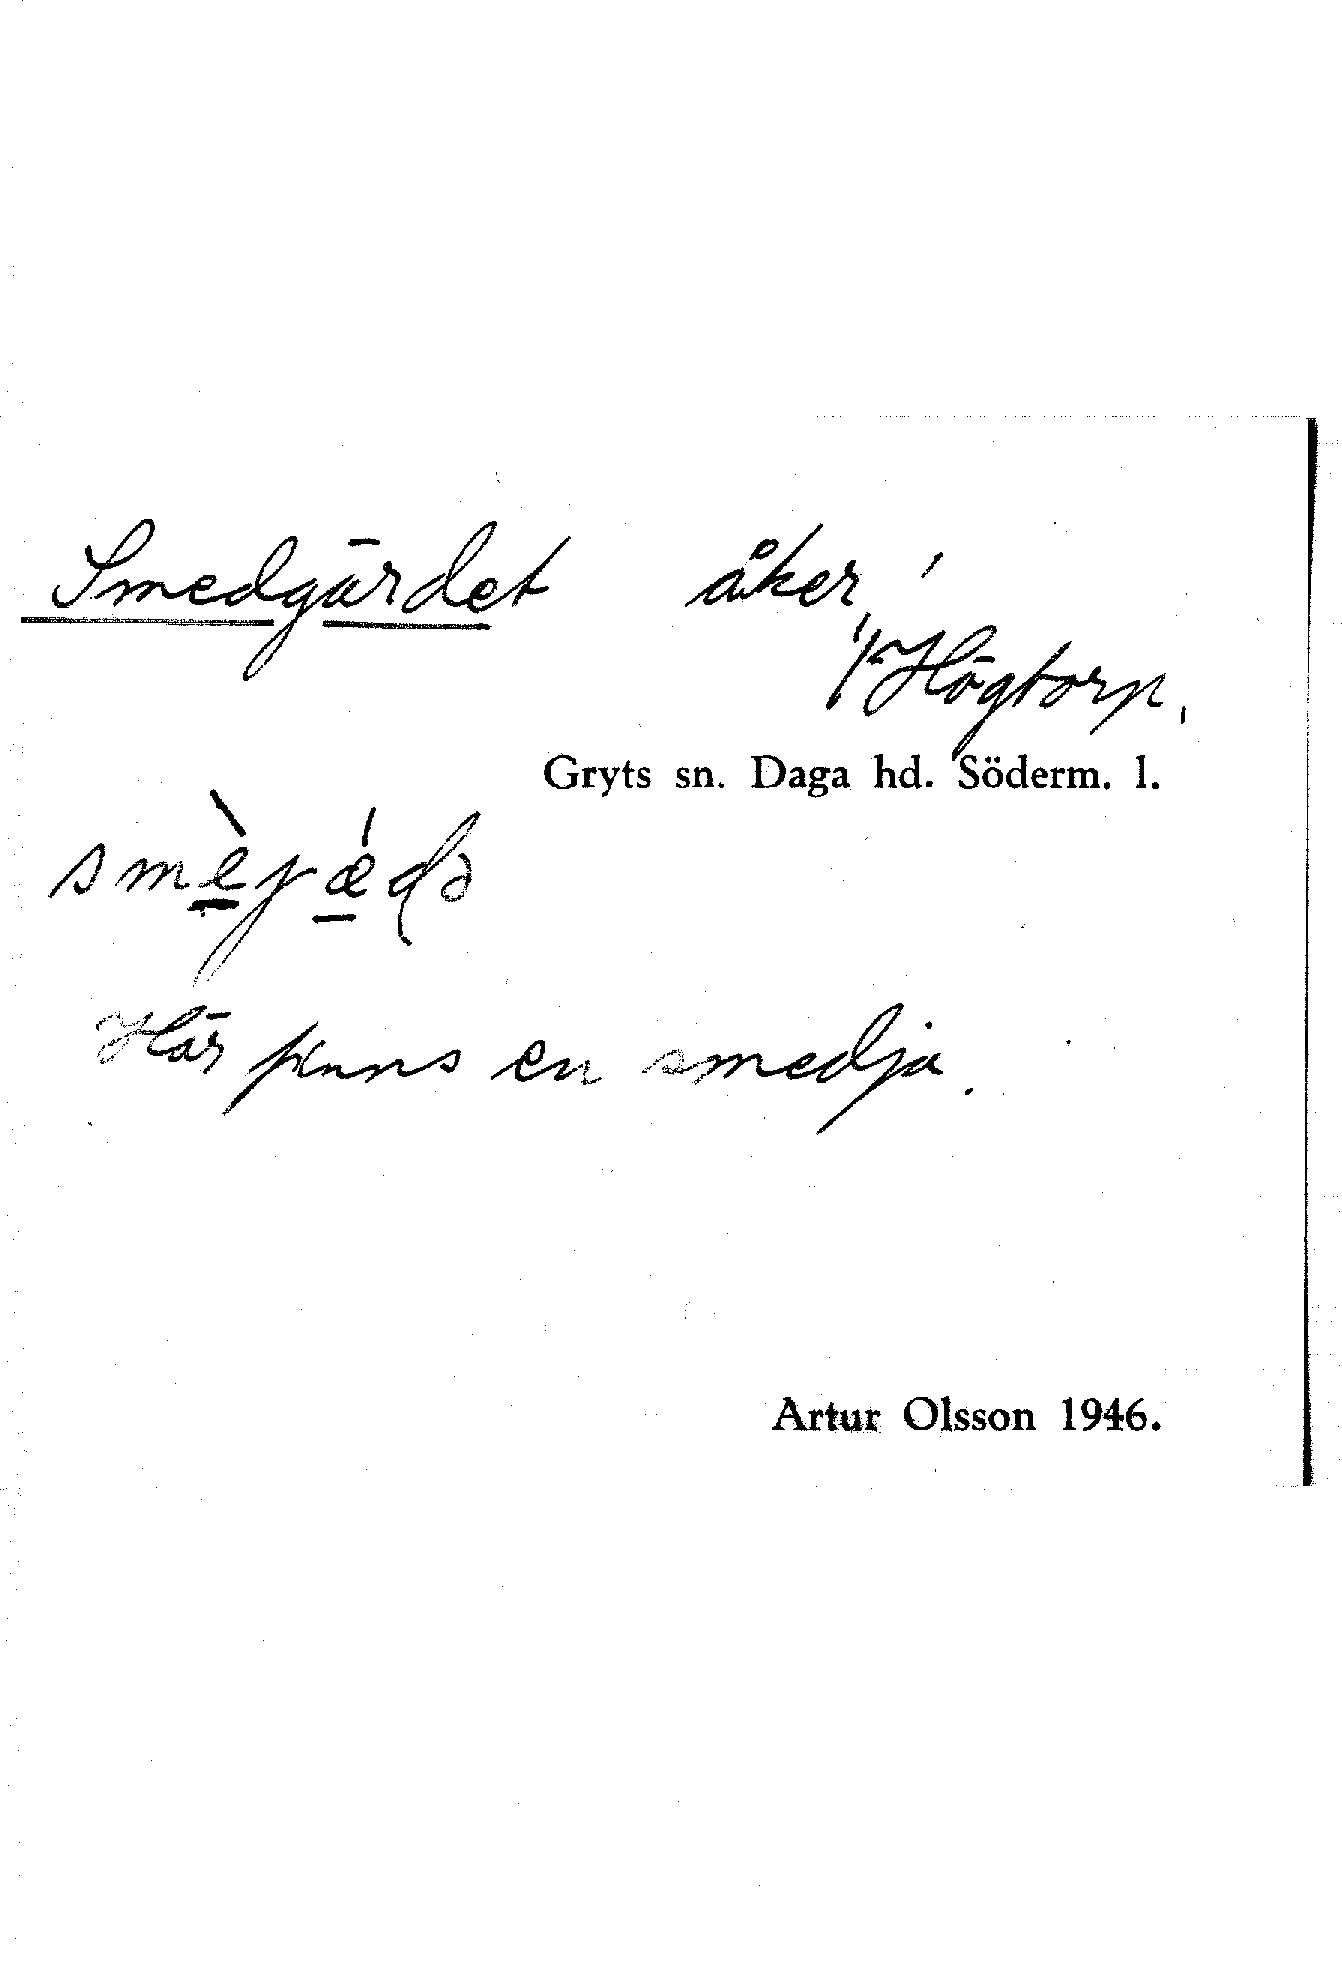 Smedgärdet åker,
/Högtorp,
Gryts sn. Daga hd. Söderm. l.
smèjǽɖə
Här finns en smedja.
Artur Olsson 1946.